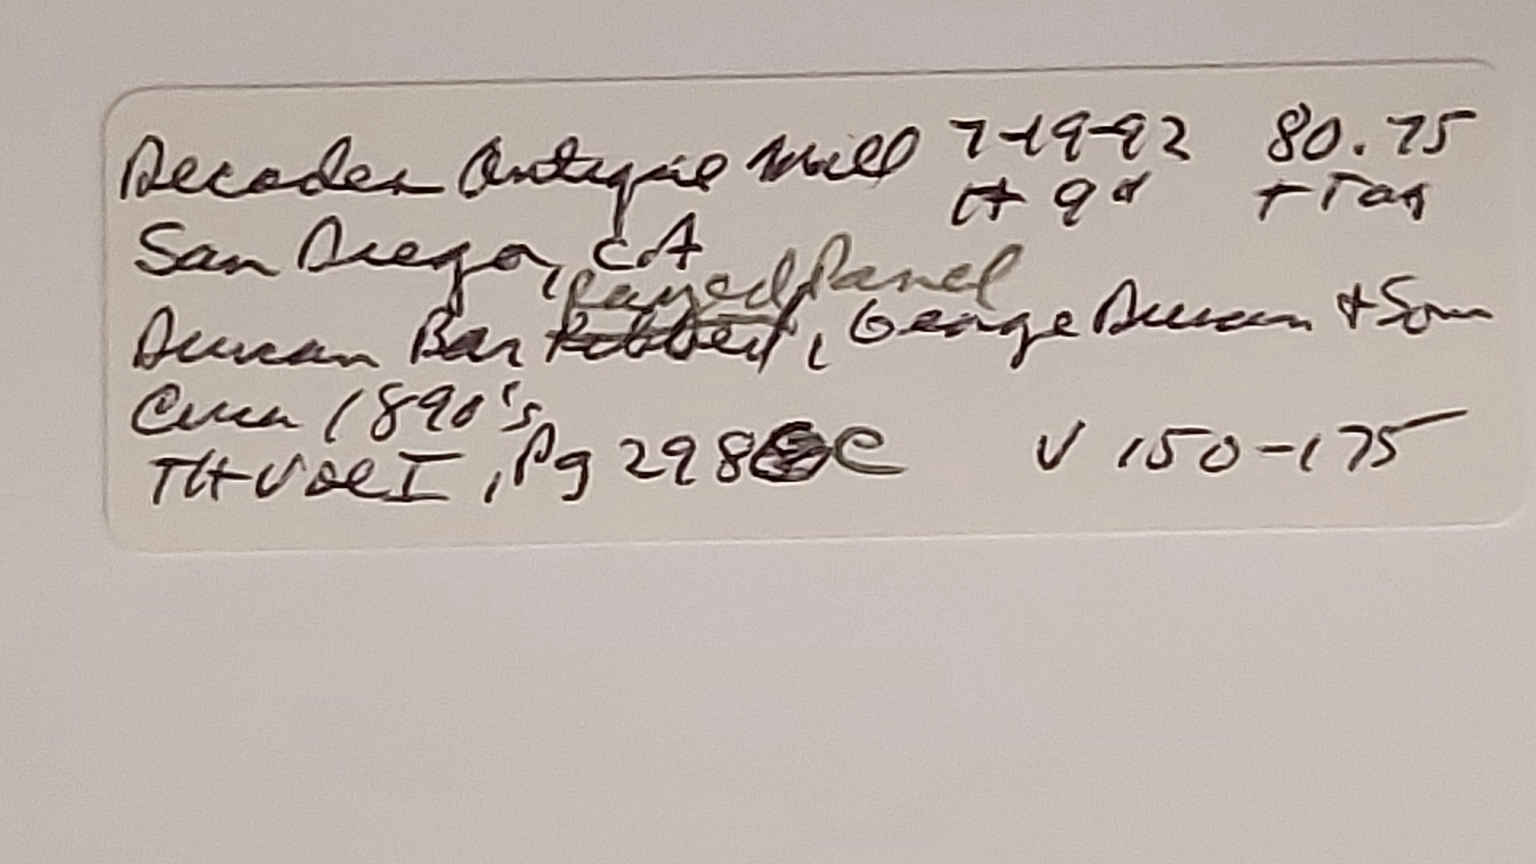 Decades Antique Mall 7-19-92 80.75
H 9d + Tax
San Diego, CA
Rayed Panel
Duncan Bar Ribbed, George Duncan + Son
Circa 1890's
TH Vol I, Pg 298 C V 150-175